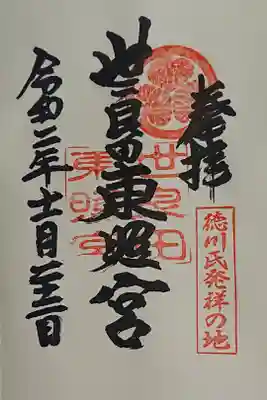 奉拝
徳川氏発祥の地
世良田東照宮
世良田
東照宮
令和二年十一月二十三日